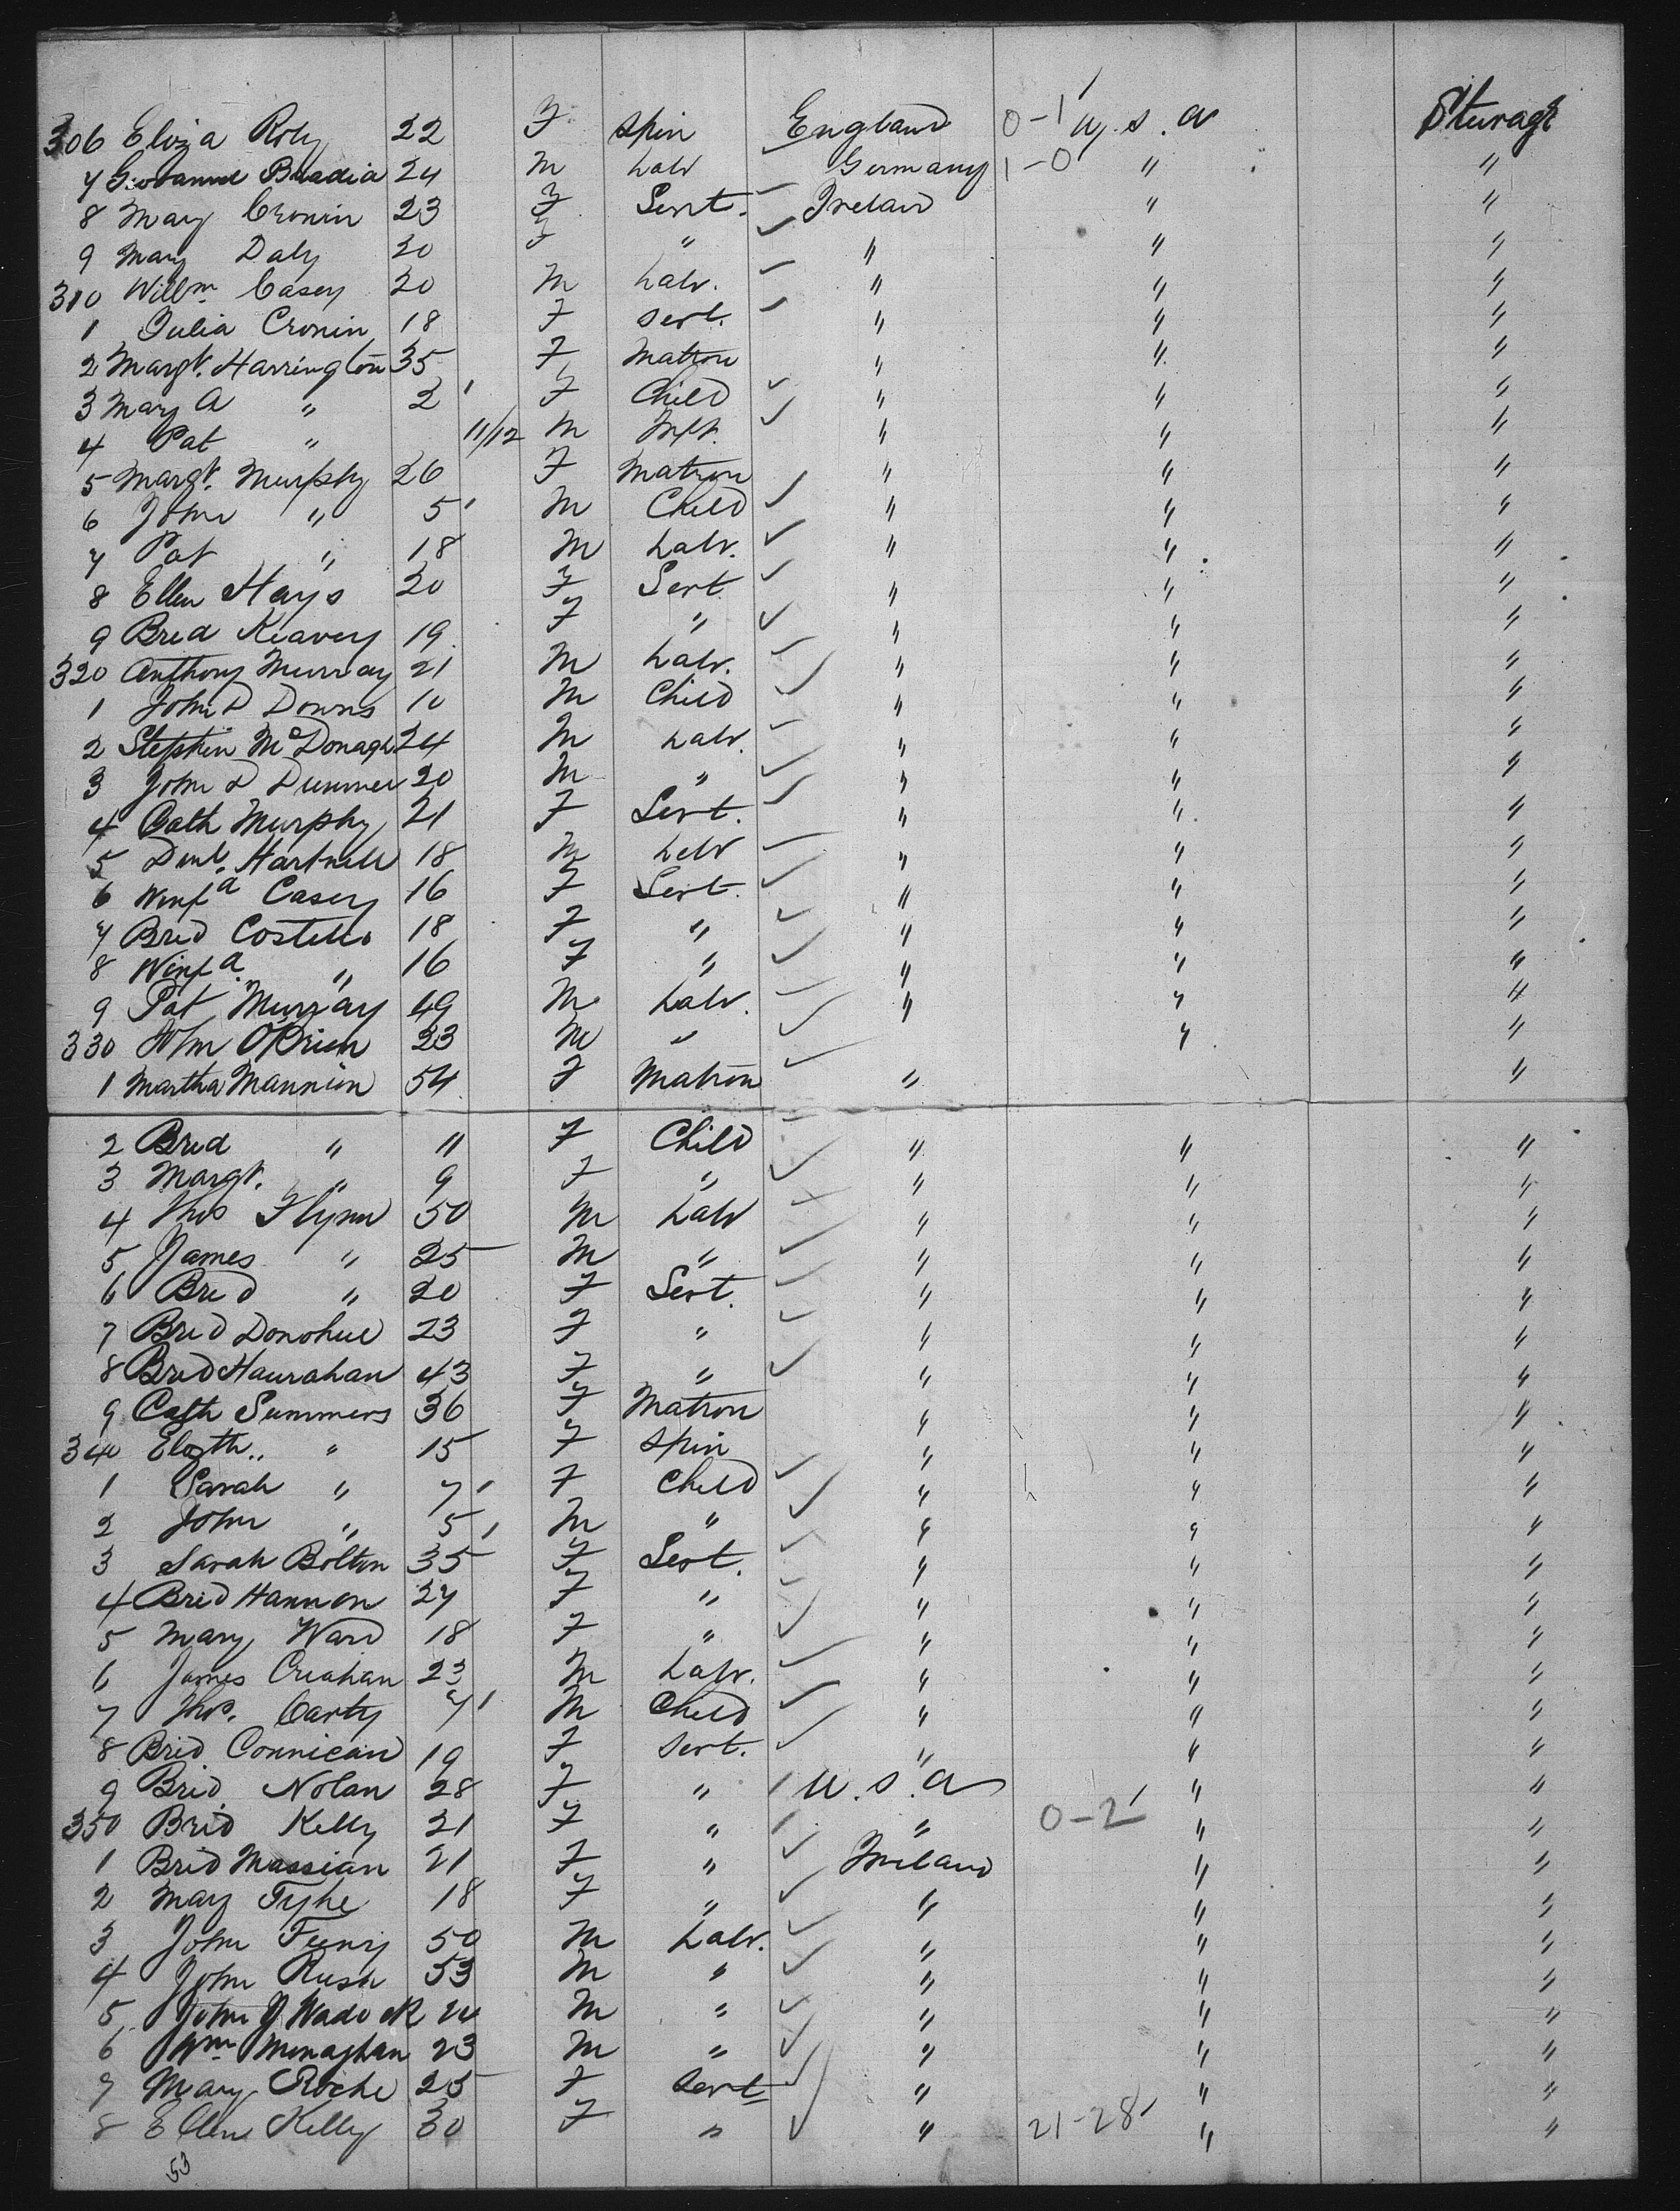 306 Eliza Roby 22 F Spin England 0-1 U.S.A Sturage
7 Giovanni 24 M Labr Germany 1-0 " "
8 Mary Cronin 23 F Servt. Ireland " "
9 Mary Daly 20 F " " " "
310 Willm Casey 20 M Labr. " " "
1 Julia Cronin 18 F Servt. " " "
2 Margt. Harrington 35 F Matron " " "
3 Mary A " 2 F Child " " "
4 Pat " 11/12 M Inft. " " "
5 Margt. Murphy 26 F Matron " " "
6 John " 5 M Child " " "
7 Pat " 18 M Labr. " " "
8 Ellen Hays 20 F Servt " " "
9 Brid Keavey 19 F " " " "
320 Anthony Murray 21 M Labr. " " "
1 John D Downs 10 M Child " " "
2 Stephen McDonagh 24 M Labr. " " "
3 John D 20 M " " " "
4 Cath Murphy 21 F Servt. " " "
5 Danl. Hartnell 18 M Labr " " "
6 Winfa Casey 16 F Servt. " " "
7 Brid Costello 18 F " " " "
8 Winfa. " 16 F " " " "
9 Pat Murray 49 M Labr. " " "
330 John O'Brien 23 M " " "
1 Martha Mannion 54 F Matron " "
2 Brid " 11 F Child " " "
3 Margt. " 9 F " " " "
4 Thos Flynn 50 M Labr " " "
5 James " 25 M " " " "
6 Brid " 20 F Servt. " " "
7 Brid Donohue 23 F " " " "
8 Brid Hanrahan 43 F " " " "
9 Cath Summers 36 F Matron " " "
340 Elizth.. " 15 F Spin " " "
1 Sarah " 7 F Child " " "
2 John " 5 M " " " "
3 Sarah Bolton 35 F Servt. " " "
4 Brid Hannon 27 F " " " "
5 Mary Ward 18 F " " " "
6 James Creahan 23 M Labr. " " "
7 Thos. Carty 7 M Child " " "
8 Brid Connican 19 F Servt. " " "
9 Brid Nolan 28 F " U.S.A " "
350 Brid Kelly 21 F " " 0-2 " "
1 Brid Massian 21 F " Ireland " "
2 Mary Tyhe 18 F " " " "
3 John Feeny 50 M Labr. " " "
4 John Rush 53 M " " " "
5 John J Wadock 24 M " " " "
6 Wm Monaghan 23 M " " " "
7 Mary Roche 25 F Servt " " "
8 Ellen Kelly 30 F " " 21-28 " "
53